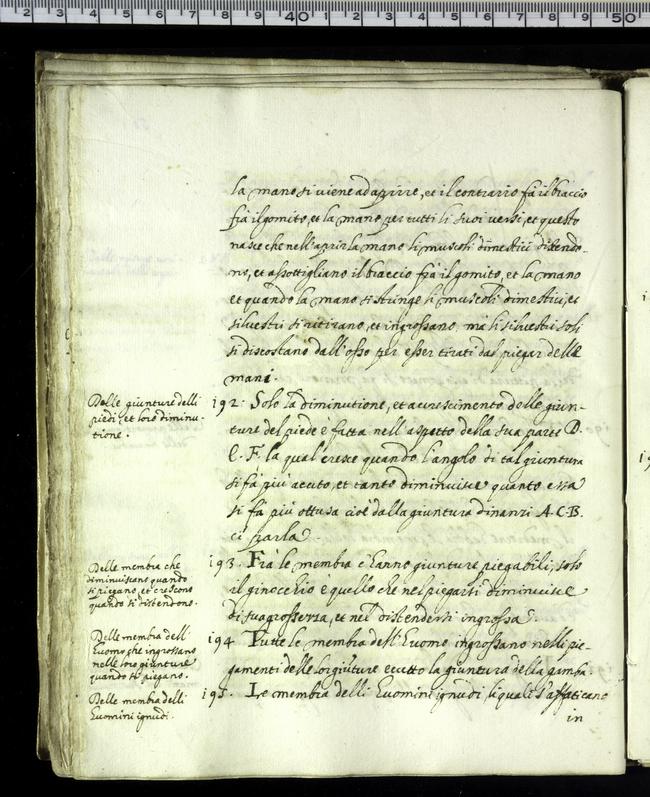 la mano si viene ad aprire, et il contrario fà il braccio
frà il gomito, et la mano per tutti li suoi versi, et questo
nasce che nell'aprir la mano li muscoli dimestici distendo-
no, et assottigliano il braccio frà il gomito, et la mano
et quando la mano si stringe li muscoli dimestici, et
silvestri si ritirano, et ingrossano, mà li silvestri soli
si discostano dall'osso per esser tirati dal piegar delle
mani.
Delle giunture delli
piedi, et loro diminu-
tione.
192. Solo la diminutione, et accrescimento delle giun-
ture del piede è fatta nell'aspetto della sua parte D.
E. F. la qual cresce quando l'angolo di tal giuntura
si fà più acuto, et tanto diminuisce quanto essa
si fà più ottusa cioè dalla giuntura dinanzi A.C.B.
ci parla.
Delle membra che
diminuiscano quando
si piegano, et crescono
quando si distendono.
193. Frà le membra c'hanno giunture piegabili, solo
il ginocchio è quello che nel piegarsi diminuisce
di sua grossezza, et nel distendersi ingrossa.
Delle membra dell'
Huomo che ingrossano
nelle loro giunture
quando si piegano.
194 Tutte le membra dell'Huomo ingrossano nelli pie-
gamenti delle lor giunture eccetto la giuntura della gamba
Delle membra delli
Huomini ignudi.
195. Le membra delli Huomini ignudi, li quali s'affaticano
in